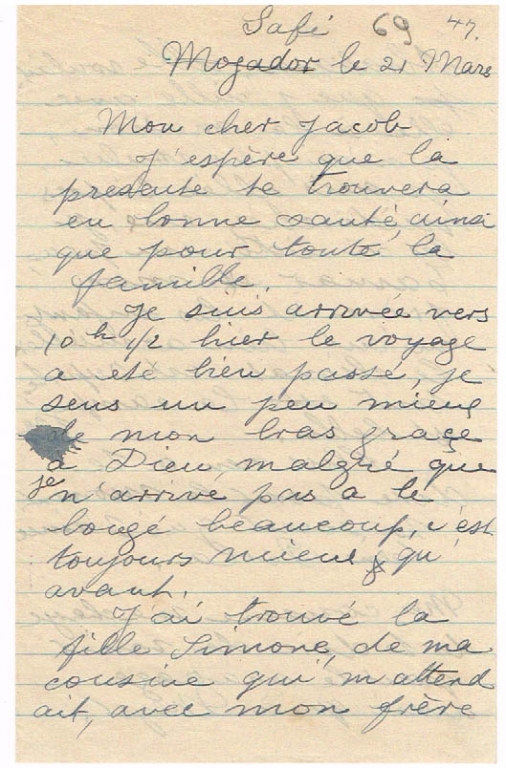 Safi 69 47.
Mogador le 21 Mars
Mon cher Jacob
J'espère que la
presente te trouvera
en bonne santé, ainsi
que pour toute la
famille.
Je suis arrivée vers
10 h 1/2 hier le voyage
a eté bien passé, je
sens un peu mieux
de mon bras graçe
a Dieu, malgré que
je n'arrive pas a le
bougé beaucoup, c'est
toujours mieux qu'
avant.
J'ai trouvé la
fille Simone, de ma
cousine qui m'attend
ait, avec mon frère